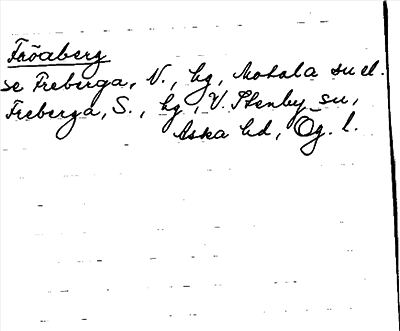 Fröaberg
se Freberga, N., hg, Motala su el.
Freberga, S., hg, V. Stenby su,
Aska hd, Ög. l.